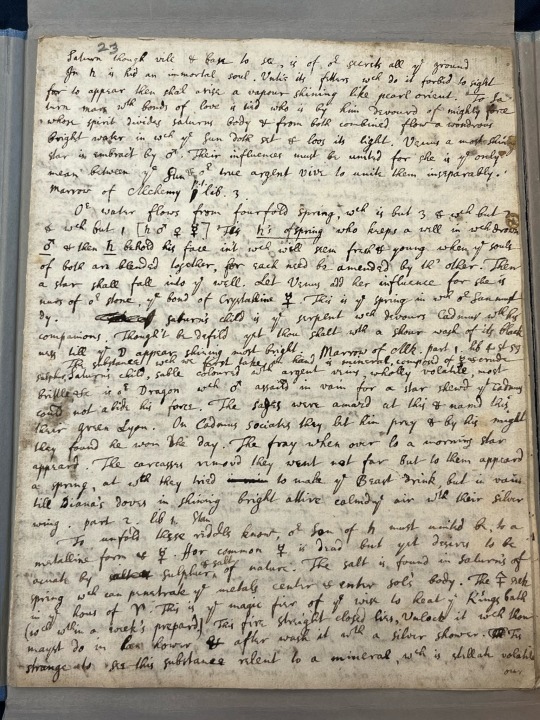 23
Saturn though vile & base to see, is of oʳ secrets all yᵉ ground
In ♄ is hid an immortal soul. Untie its fetters wᶜʰ do it forbid to sight
for to appear then shal arise a vapour shining like pearl orient. To Sa
turn mars wᵗʰ bonds of love is tied who is by him devourd of mighty force
whose spirit divides saturns body & from both combined flow a wondrous
bright water in wᶜʰ yᵉ Sun doth set & loos its light. Venus a most shining
star is embrac't by ♂. Their influences must be united for she is yᵉ only
mean between yᵉ Sun & oʳ true argent vive to unite them inseparably.
Marrow of Alchemy lib. 3
Oʳ water flows from fourfold spring, wᶜʰ is but 3 wᶜʰ but 2
& wᶜʰ but 1 [♄ ♂ ♀ ☿] This ♄'s ofspring who keeps a well in wᶜʰ drown
♂ & then ♄ behold his face in't wᶜʰ will seem fresh & young when yᵉ souls
of both are blended together, for each need be amended by th' other. Then
a star shall fall into yᵉ well. Let Venus add her influence for she is
nurs of oʳ stone, yᵉ bond of Crystalline ☿. This is yᵉ spring in wᶜʰ oʳ Sun must
dy. Saturns child is yᵉ serpent wᶜʰ devours Cadmus wᵗʰ his
companions. Though't be defild yet thou shalt wᵗʰ a shour wash of its black
ness till yᵉ D appear shining most bright. Marrow of Alk. part 1. lib
The substance wᶜʰ we first take in hand is mineral compos'd of ☿ & crude
sulphur, Saturns child, sable coloured wᵗʰ argent veins wholly volatile most
brittle is oʳ Dragon wᶜʰ ♂ assaild in vain for a star shewd yᵗ Cadmus
could not abide his force. The sages were amazd at this & namd this
their green Lyon. On Cadmus sociates they let him prey & by his might
they found he won the day. The fray when over lo a morning star
appeard. The carcasses removd they went not far but to them appeard
a spring, at wᶜʰ they tried to make yᵉ Beast drink, but in vain
till Diana's doves in shining bright attire calmd yᵉ air wᵗʰ their silver
wing. part 2. lib 1.
To unfold these riddles know, oʳ son of ♄ must united be to a
metalline form & ☿. For common ☿ is dead but yet desires to be
acuate by sulphur & salt of nature. The salt is found in Saturns of
spring wᶜʰ can penetrate yᵉ metals center & enter sols body. The
in yᵉ hous of ♈. This is yᵉ magic fire of yᵉ wise to heat yᵉ Kings bath
(wᶜʰ wthin a week's prepard) This fire straight closed lies, Unlock it wᶜʰ thou
mayst do in an hower & after wash it wᵗʰ a silver shower. Tis
strange to see this substance relent to a mineral, wᶜʰ is still volatile
our